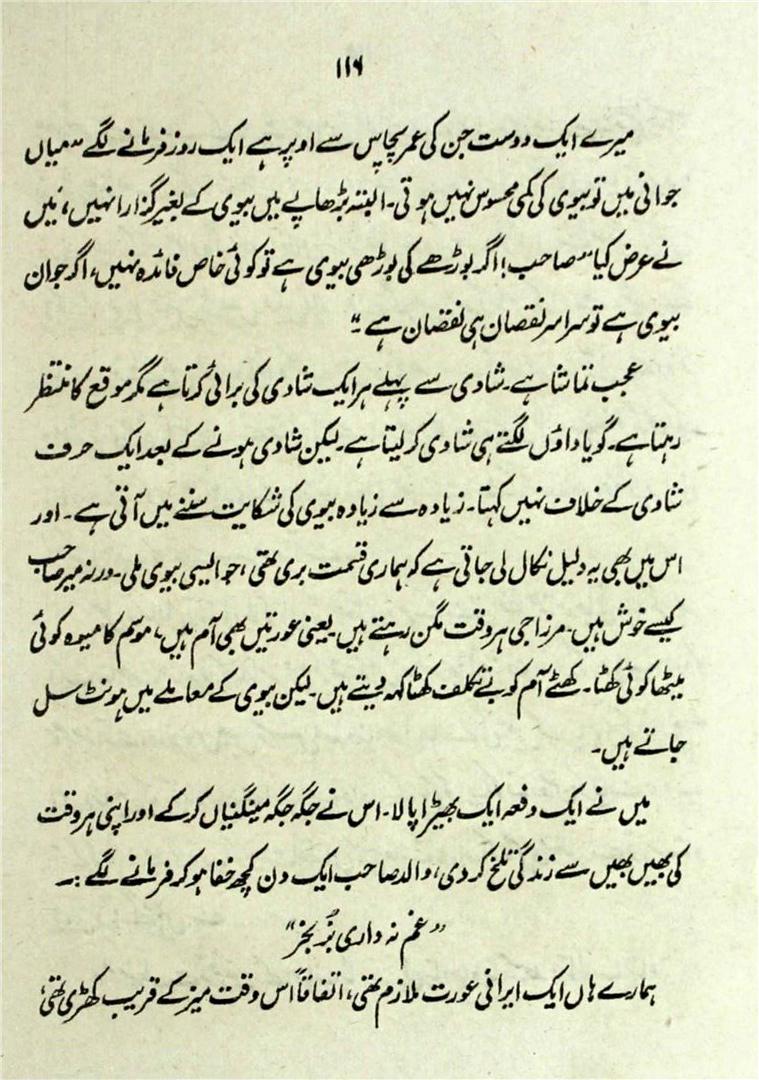 ۱۱۶
میرے ایک دوست جن کی عمر پچاس سے اوپر ہے ایک روز فرمانے لگے "میاں
جوانی میں تو بیوی کی کمی محسوس نہیں ہوتی۔ البتہ بڑھاپے میں بیوی کے بغیر گزارا نہیں، میں
نے عرض کیا "صاحب! اگر بوڑھے کی بوڑھی بیوی ہے تو کوئی خاص فائدہ نہیں، اگر جوان
بیوی ہے تو سراسر نقصان ہی نقصان ہے۔"
عجب تماشا ہے۔ شادی سے پہلے ہر ایک شادی کی برائی کرتا ہے مگر موقع کا منتظر
رہتا ہے۔ گویا داؤں لگتے ہی شادی کر لیتا ہے۔ لیکن شادی ہونے کے بعد ایک حرف
شادی کے خلاف نہیں کہتا۔ زیادہ سے زیادہ بیوی کی شکایت سننے میں آتی ہے۔ اور
اس میں بھی یہ دلیل نکال لی جاتی ہے کہ ہماری قسمت بری تھی، جو ایسی بیوی ملی۔ ورنہ میر صاحب
کیسے خوش ہیں۔ مرزا جی ہر وقت مگن رہتے ہیں۔ یعنی عورتیں بھی آم ہیں، موسم کا میوہ کوئی
میٹھا کوئی کھٹا۔ کھٹے آم کو بے تکلف کھٹا کہہ دیتے ہیں۔ لیکن بیوی کے معاملے میں ہونٹ سل
جاتے ہیں۔
میں نے ایک دفعہ ایک بھیڑا پالا۔ اس نے جگہ جگہ مینگنیاں کر کے اور اپنی ہر وقت
کی بھیں بھیں سے زندگی تلخ کر دی، والد صاحب ایک دن کچھ خفا ہو کر فرمانے لگے :۔
"غم نہ داری بُز بخر"
ہمارے ہاں ایک ایرانی عورت ملازم تھی، اتفاقاً اس وقت میز کے قریب کھڑی تھی،